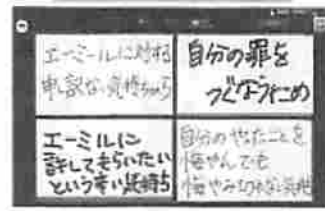 エーミールに対する
申し訳ない気持ちから
自分の罪を
つぐなうため
エーミルに
許してもらいたい
という辛い気持ち
自分のやったことを
悔やんでも
悔やみきれない気持